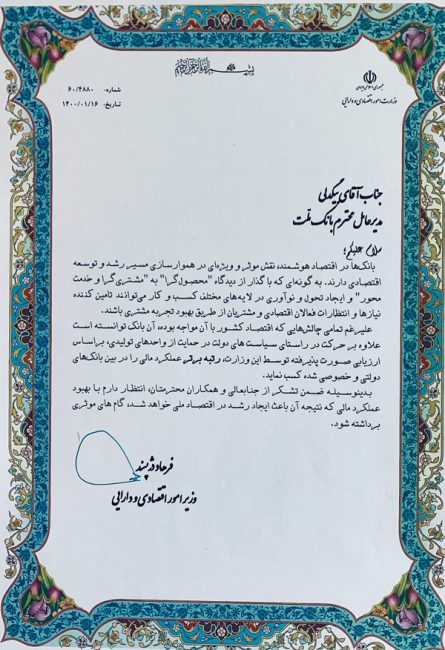 بسم الله الرحمن الرحیم
جمهوری اسلامی ایران
وزارت امور اقتصادی و دارایی
شماره: ۶۰/۴۸۸۰
تاریخ: ۱۴۰۰/۰۱/۱۶
جناب آقای بیگدلی
مدیرعامل محترم بانک ملّت
سلام علیکم؛
بانک‌ها در اقتصاد هوشمند، نقش موثر و ویژه‌ای در هموارسازی مسیر رشد و توسعه
اقتصادی دارند. به گونه‌ای که با گذار از دیدگاه "محصول‌گرا" به "مشتری‌گرا و خدمت
محور" و ایجاد تحول و نوآوری در لایه‌های مختلف کسب و کار می‌توانند تامین کننده
نیازها و انتظارات فعالان اقتصادی و مشتریان از طریق بهبود تجربه مشتری باشند.
علیرغم تمامی چالش‌هایی که اقتصاد کشور با آن مواجه بوده، آن بانک توانسته است
علاوه بر حرکت در راستای سیاست های دولت در حمایت از واحدهای تولیدی، بر اساس
ارزیابی صورت پذیرفته توسط این وزارت، رتبه برتر عملکرد مالی را در بین بانک‌های
دولتی و خصوصی شده کسب نماید.
بدینوسیله ضمن تشکر از جنابعالی و همکاران محترمتان، انتظار دارم با بهبود
عملکرد مالی که نتیجه آن باعث ایجاد رشد در اقتصاد ملی خواهد شد، گام های موثری
برداشته شود.
فرهاد دژپسند
وزیر امور اقتصادی و دارایی